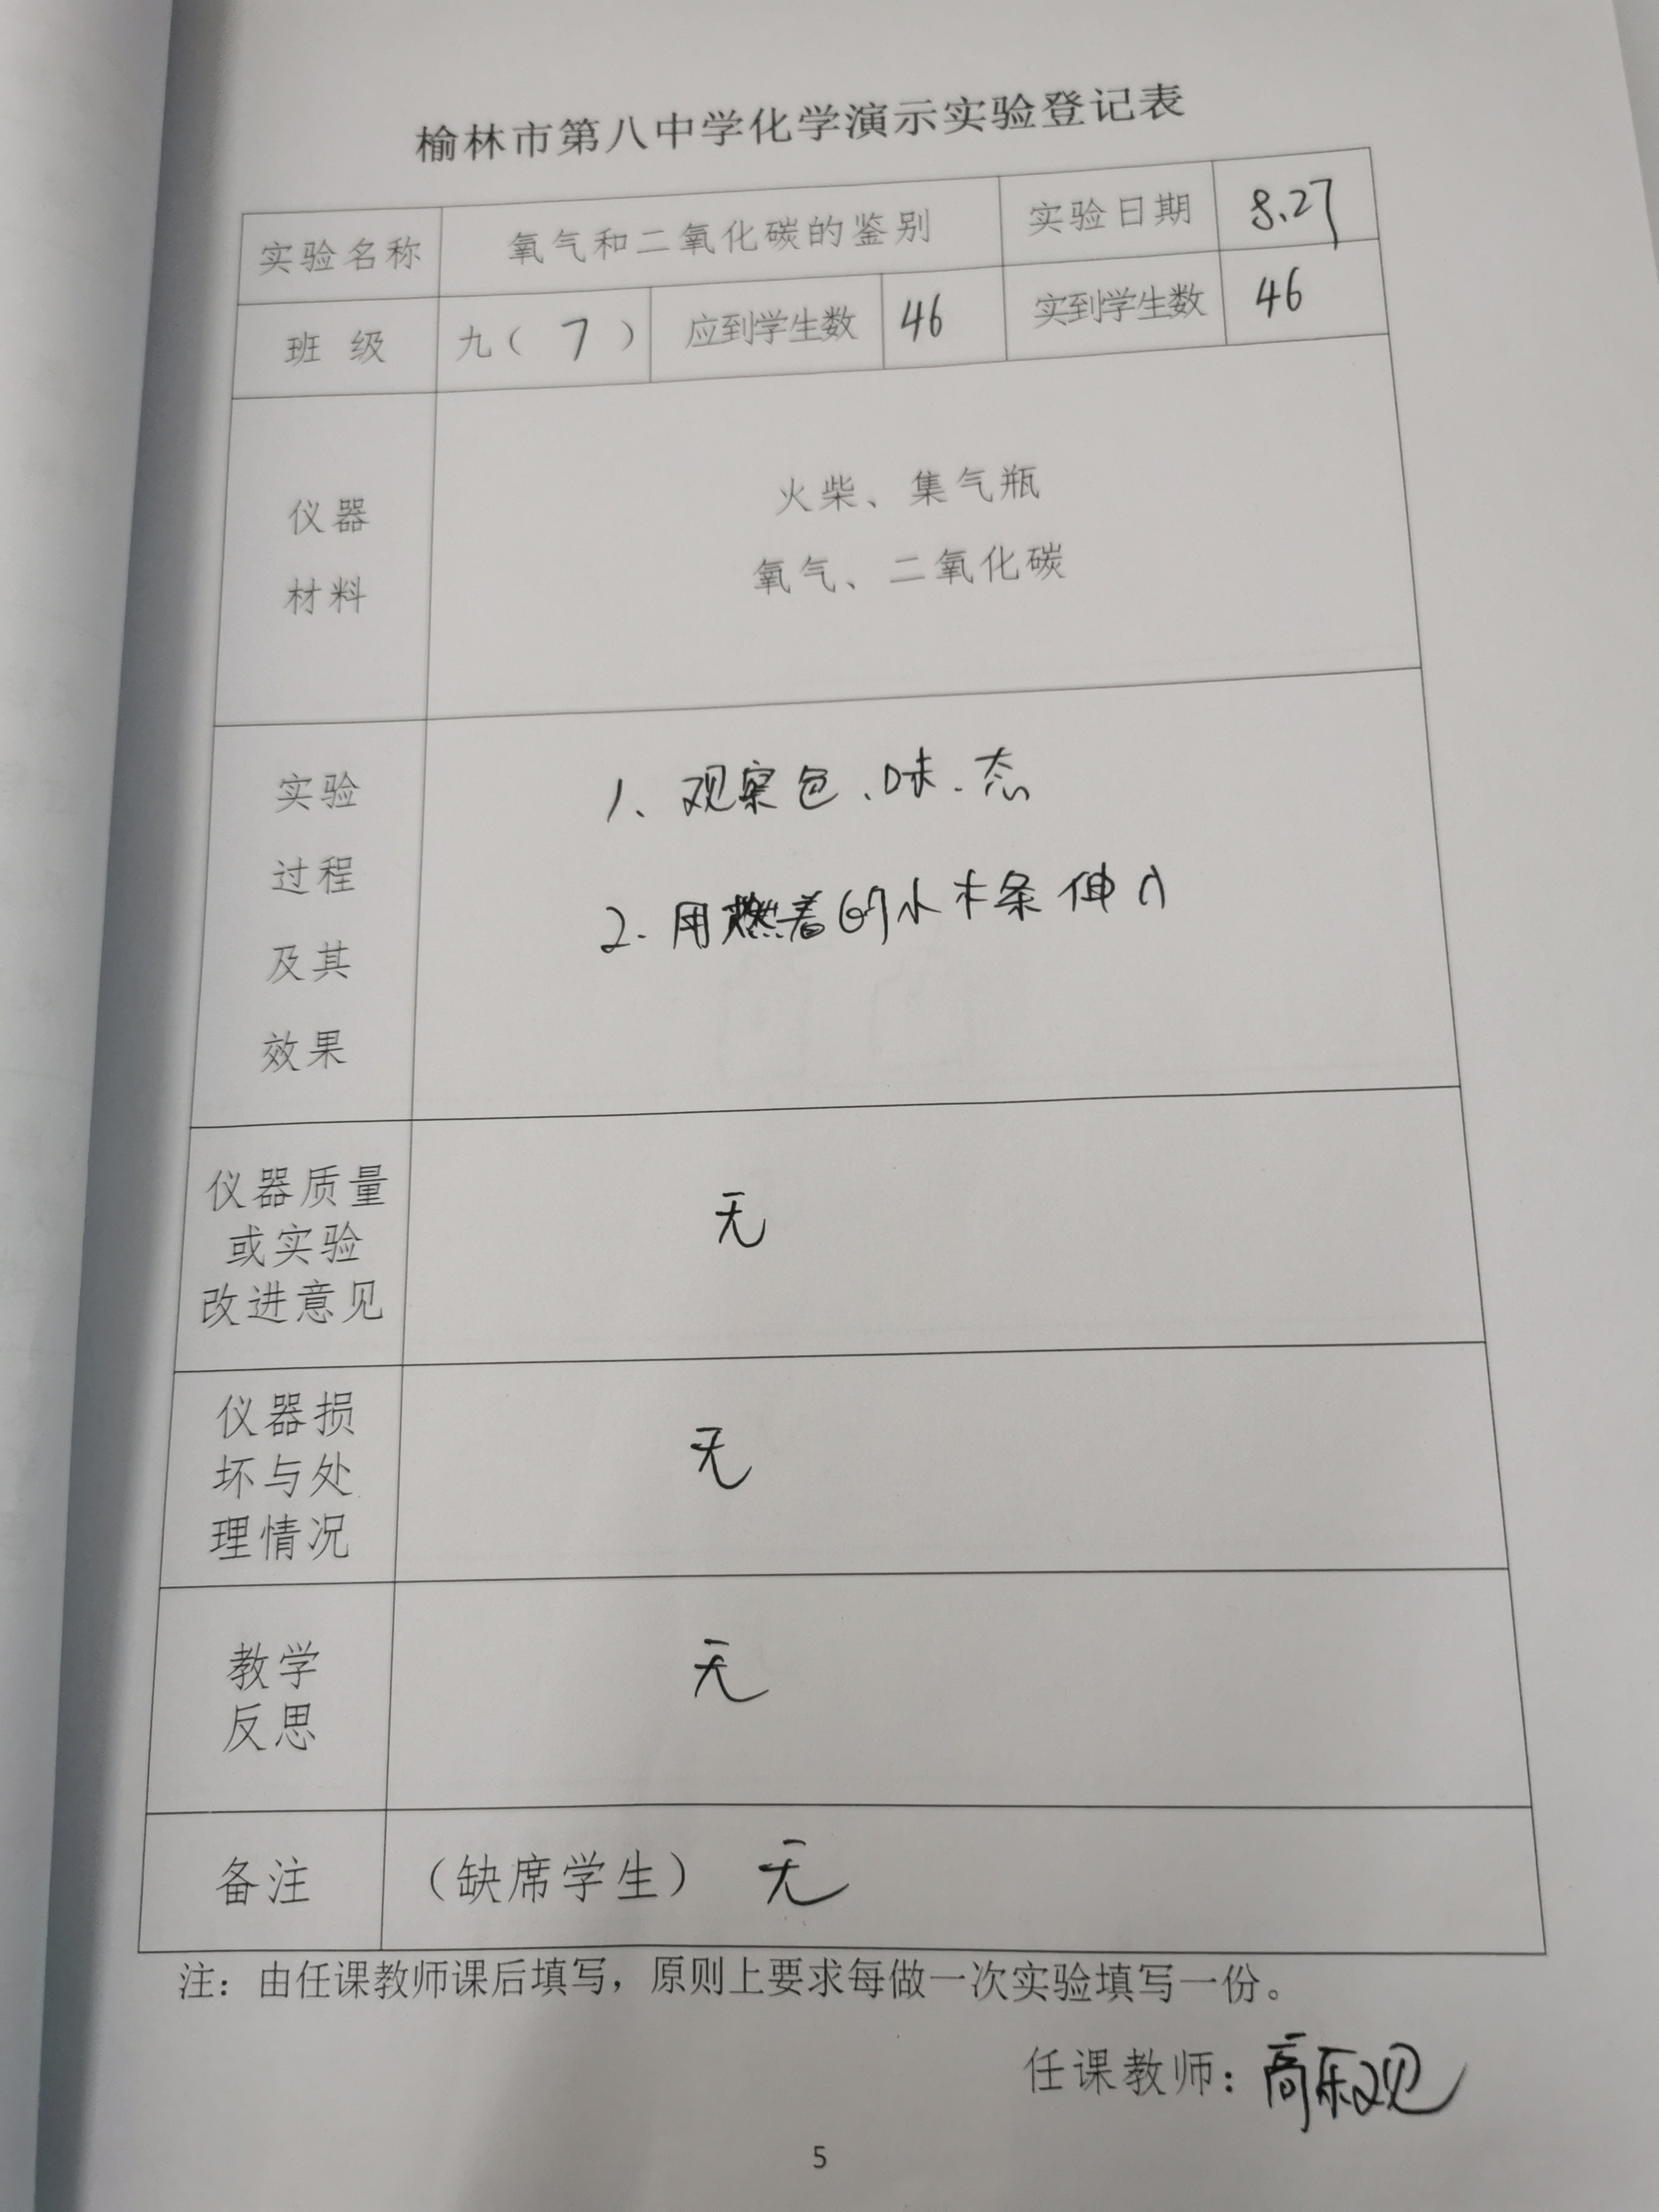 榆林市第八中学化学演示实验登记表
实验名称 氧气和二氧化碳的鉴别 实验日期 8.27
班 级 九（ 7 ） 应到学生数 46 实到学生数 46
仪器
材料
火柴、集气瓶
氧气、二氧化碳
实验
过程
及其
效果
1、观察色、味、态
2.用燃着的小木条伸入
仪器质量
或实验
改进意见
无
仪器损
坏与处
理情况
无
教学
反思
无
备注 （缺席学生） 无
注：由任课教师课后填写，原则上要求每做一次实验填写一份。
任课教师：高乐观
5